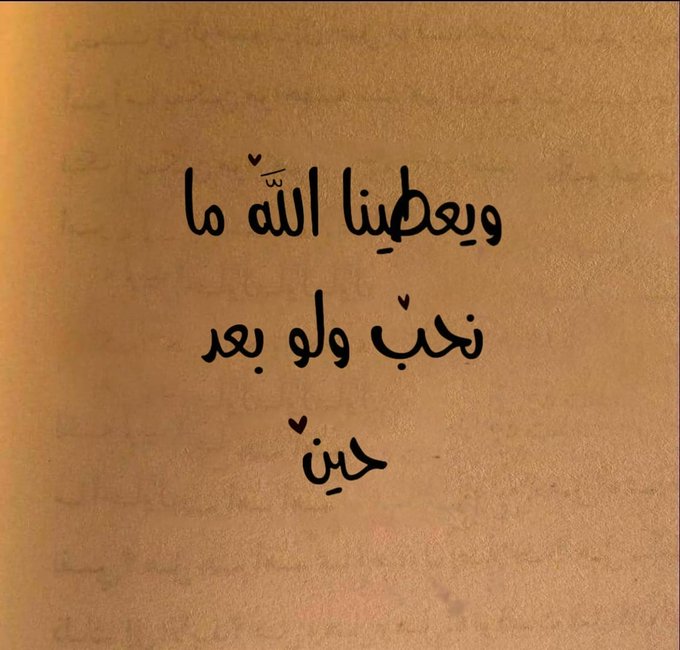 ويعطينا اللَّه ما
نحب ولو بعد
حين